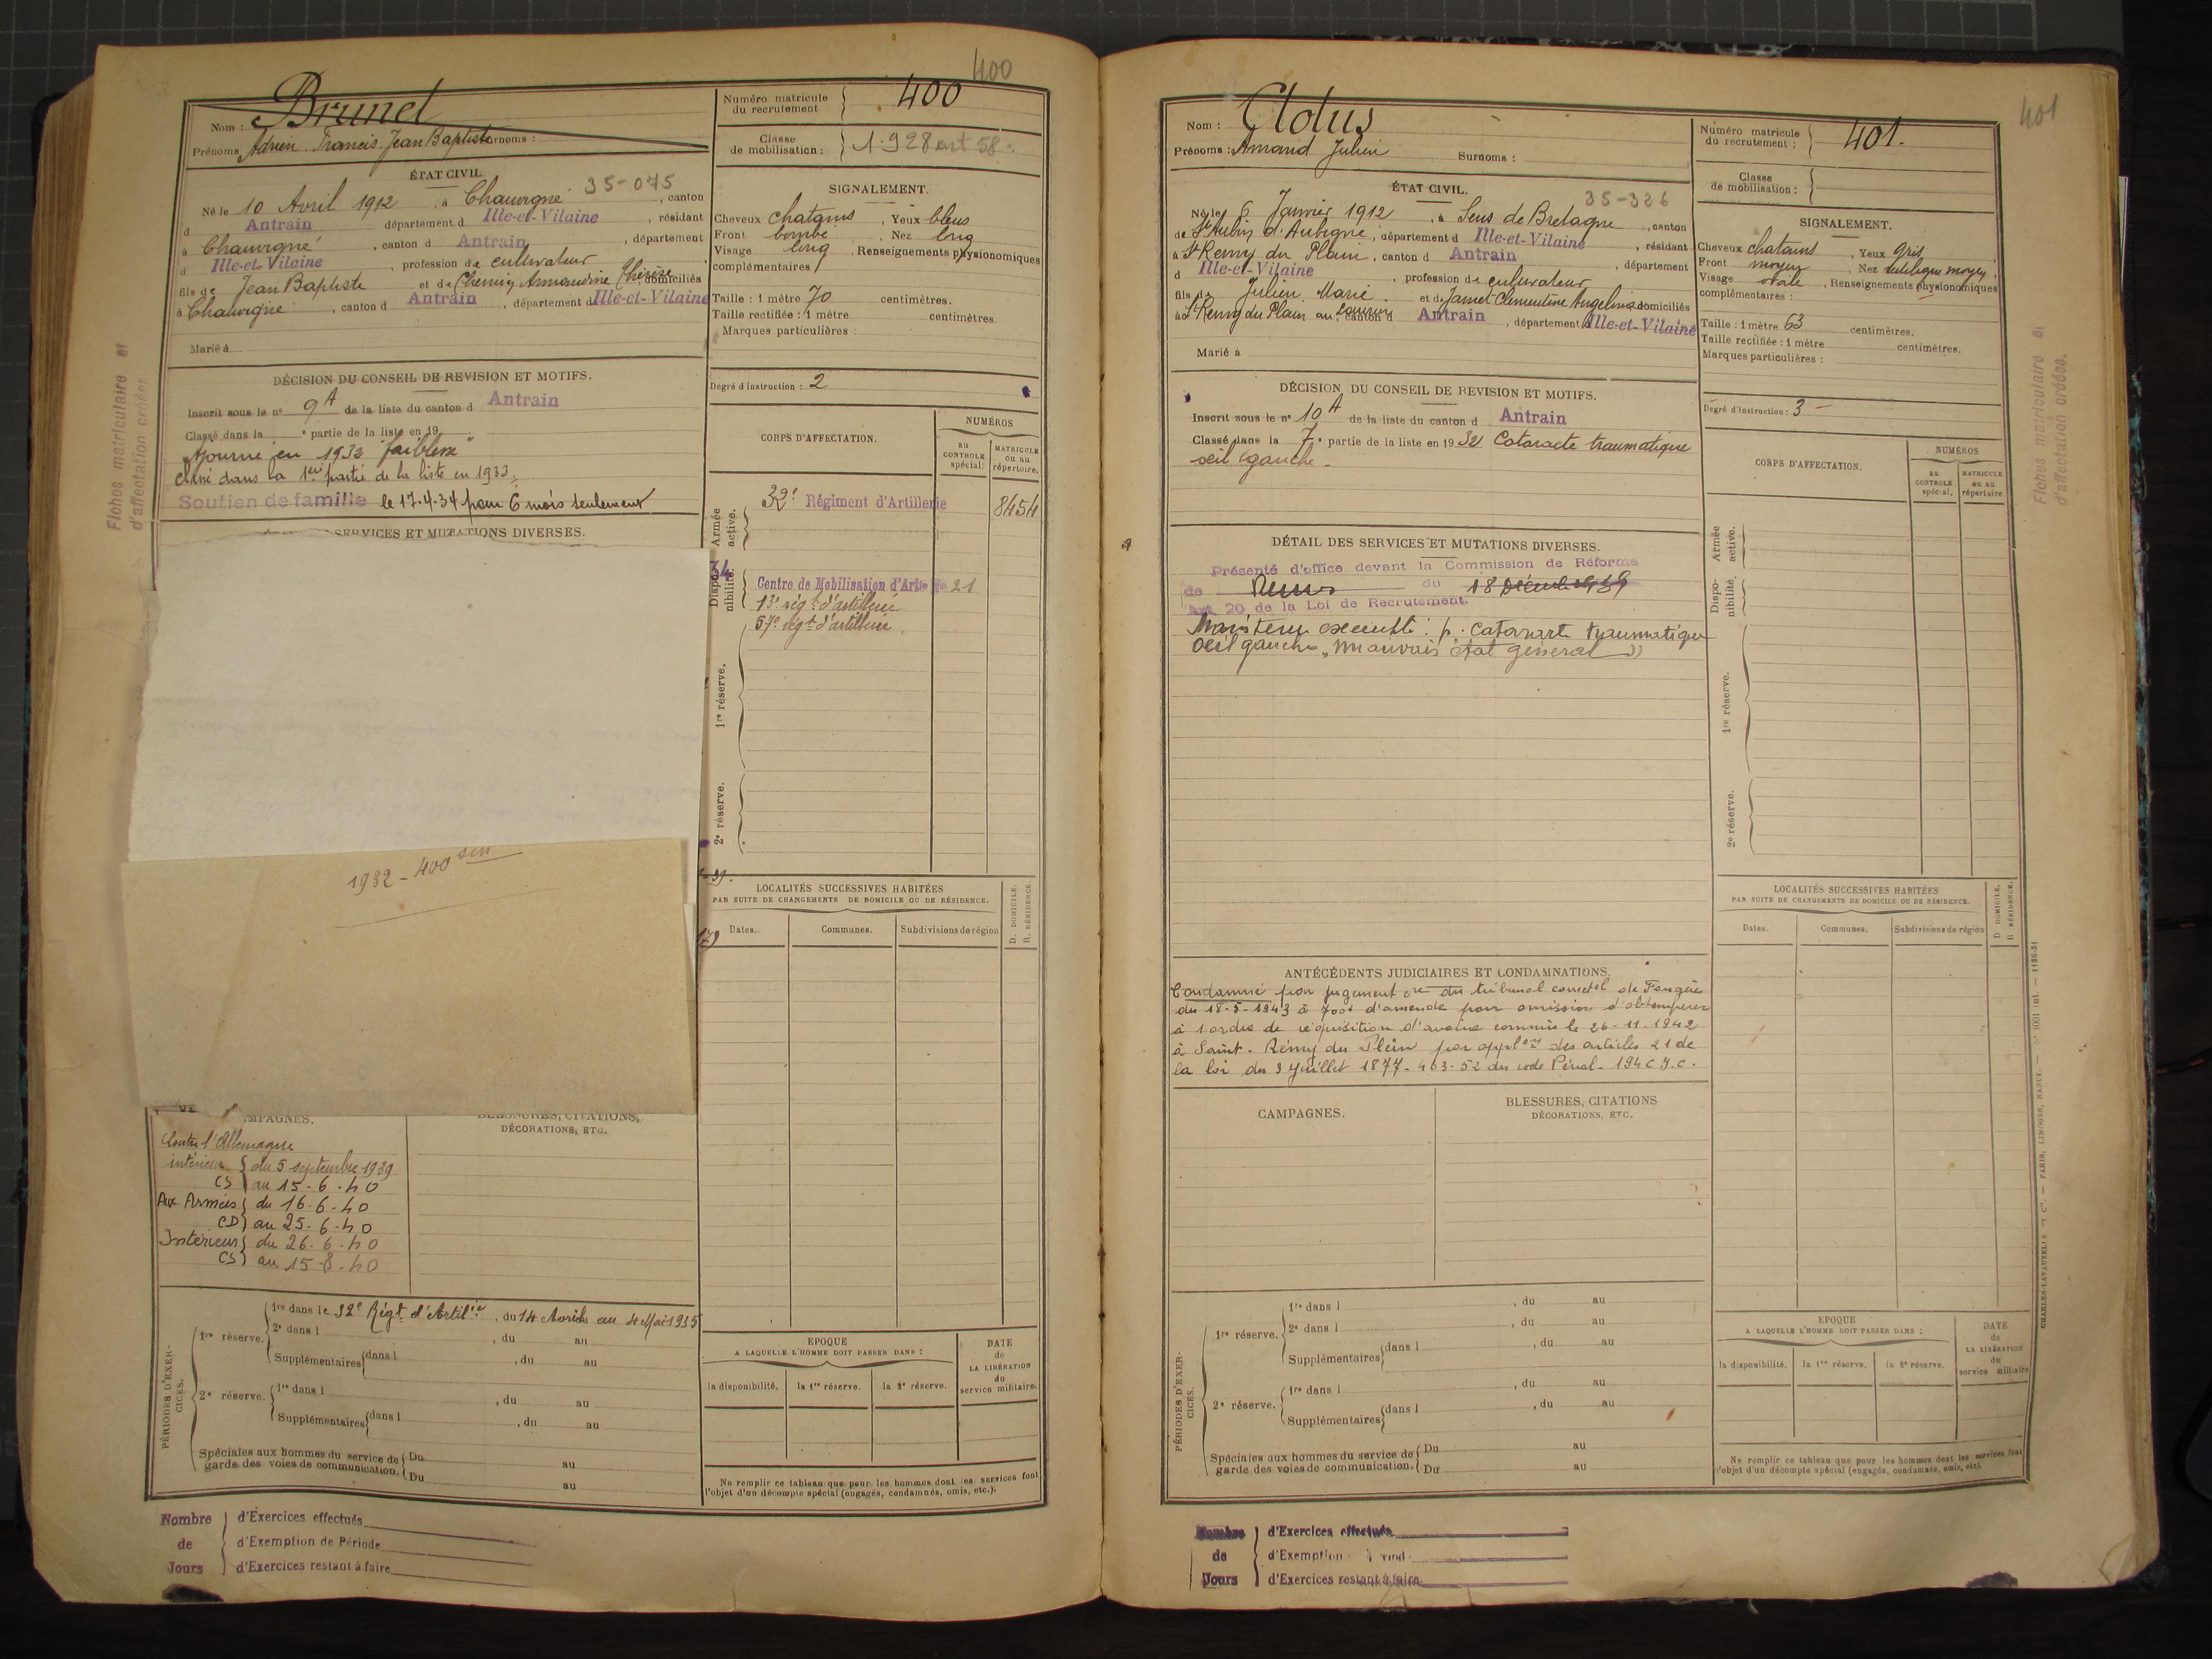 400
Nom : Brunel
Prénoms Adrien Francis Jean Baptiste Surnoms :
Numéro matricule du recrutement } 400
Classe de mobilisation : } 1928 art 58
ÉTAT CIVIL
35-075
Né le 10 Avril 1912, à Chauvigné, canton
d Antrain département d Ille-et-Vilaine, résidant
à Chauvigné, canton d Antrain, département
d Ille-et-Vilaine, profession de cultivateur
fils de Jean Baptiste et de Armandine Thérèse, domiciliés
à Chauvigné, canton d Antrain, département d Ille-et-Vilaine
Marié à
SIGNALEMENT.
Cheveux chatains, Yeux bleus
Front bombé, Nez long
Visage long, Renseignements physionomiques
complémentaires
Taille : 1 mètre 70 centimètres.
Taille rectifiée : 1 mètre centimètres.
Marques particulières :
Degré d'instruction : 2
DÉCISION DU CONSEIL DE REVISION ET MOTIFS.
Inscrit sous le n° 9A de la liste du canton d Antrain
Classé dans la e partie de la liste en 19
Ajourné en 1932 "faiblesse"
classé dans la 1ere partie de la liste en 1933
Soutien de famille le 17.4.34 pour 6 mois seulement
SERVICES ET MUTATIONS DIVERSES.
1932 - 400
CORPS D'AFFECTATION.
NUMÉROS
au CONTROLE spécial.
MATRICULE ou au répertoire.
Armée active.
32e Régiment d'Artillerie 8454
Disponibilité.
34
Centre de Mobilisation d'Artie de 21
13e régt d'artillerie
57e régt d'artillerie
1re réserve.
2e réserve.
LOCALITÉS SUCCESSIVES HABITÉES
PAR SUITE DE CHANGEMENTS DE DOMICILE OU DE RÉSIDENCE.
D. DOMICILE.
R. RÉSIDENCE.
Dates. Communes. Subdivisions de région
CAMPAGNES.
BLESSURES, CITATIONS,
DÉCORATIONS, ETC.
Contre l'Allemagne
intérieur { du 5 septembre 1939
CS } au 15-6-40
Aux Armées { du 16-6-40
CD) au 25-6-40
Intérieur { du 26-6-40
CS) au 15-8-40
PÉRIODES D'EXERCICES.
1re réserve. 1re dans le 32e Régt d'Artilie, du 14 Avril au 4 Mai 1935
2e dans l , du au
Supplémentaires {dans l , du au
2e réserve. 1re dans l , du au
Supplémentaires {dans l , du au
Spéciales aux hommes du service de garde des voies de communication. { Du au
Du au
EPOQUE
A LAQUELLE L'HOMME DOIT PASSER DANS :
la disponibilité. la 1re réserve. la 2e réserve.
DATE de LA LIBÉRATION du service militaire.
Ne remplir ce tableau que pour les hommes dont les services font
l'objet d'un décompte spécial (engagés, condamnés, omis, etc.).
Nombre de Jours
d'Exercices effectués
d'Exemption de Période
d'Exercices restant à faire
Fiches matriculaire et
d'affectation créées
401
Nom : Clolus
Prénoms : Amand Julien Surnoms :
Numéro matricule du recrutement : } 401.
Classe de mobilisation : }
ÉTAT CIVIL.
35-326
Né le 6 Janvier 1912, à Sens de Bretagne, canton
de St Aubin d'Aubigné, département d Ille-et-Vilaine, résidant
à St Remy du Plain, canton d Antrain, département
d Ille-et-Vilaine, profession de cultivateur
fils de Julien Marie. et de Jamet Clementine Angelina domiciliés
à St Remy du Plain, canton d Antrain, département d Ille-et-Vilaine
Marié à
SIGNALEMENT.
Cheveux chatains, Yeux gris
Front moyen, Nez rectiligne moyen
Visage ovale, Renseignements physionomiques
complémentaires :
Taille : 1 mètre 63 centimètres.
Taille rectifiée : 1 mètre centimètres.
Marques particulières :
Degré d'instruction : 3
DÉCISION DU CONSEIL DE REVISION ET MOTIFS.
Inscrit sous le n° 10A de la liste du canton d Antrain
Classé dans la 7e partie de la liste en 1932 Cataracte traumatique
oeil gauche
DÉTAIL DES SERVICES ET MUTATIONS DIVERSES.
Présenté d'office devant la Commission de Réforme
de Rennes du 18 Décembre 1939
Art 20 de la Loi de Recrutement.
Maintenu exempté : p. Cataracte traumatique
oeil gauche "Mauvais état général"
CORPS D'AFFECTATION.
NUMÉROS
au CONTROLE spécial.
MATRICULE ou au répertoire
Armée active.
Disponibilité.
1re réserve.
2e réserve.
LOCALITÉS SUCCESSIVES HABITÉES
PAR SUITE DE CHANGEMENTS DE DOMICILE OU DE RÉSIDENCE.
D DOMICILE.
R RÉSIDENCE.
Dates. Communes. Subdivisions de région
ANTÉCÉDENTS JUDICIAIRES ET CONDAMNATIONS.
Condamné par jugement cre du tribunal correctel de Fougères
du 18-5-1943 à d'amende pour omission d'obtempérer
à l'ordre de réquisition d'avoine commis le 26-11-1942
à Saint-Rémy du Plein par applon des articles 21 de
la loi du 3 Juillet 1877-463-52 du code Pénal-194 C.I.C.
CAMPAGNES.
BLESSURES, CITATIONS
DÉCORATIONS, ETC.
PÉRIODES D'EXERCICES.
1re réserve. 1re dans l , du au
2e dans l , du au
Supplémentaires {dans l , du au
2e réserve. 1re dans l , du au
Supplémentaires {dans l , du au
Spéciales aux hommes du service de garde des voies de communication. { Du au
Du au
EPOQUE
A LAQUELLE L'HOMME DOIT PASSER DANS :
la disponibilité. la 1re réserve. la 2e réserve.
DATE de LA LIBÉRATION du service militaire
Ne remplir ce tableau que pour les hommes dont les services font
l'objet d'un décompte spécial (engagés, condamnés, omis, etc).
Nombre de Jours
d'Exercices effectués
d'Exemption
d'Exercices restant à faire
Fiches matriculaire et
d'affectation créées.
CHARLES-LAVAUZELLE et Cie. — PARIS, LIMOGES, NANCY.